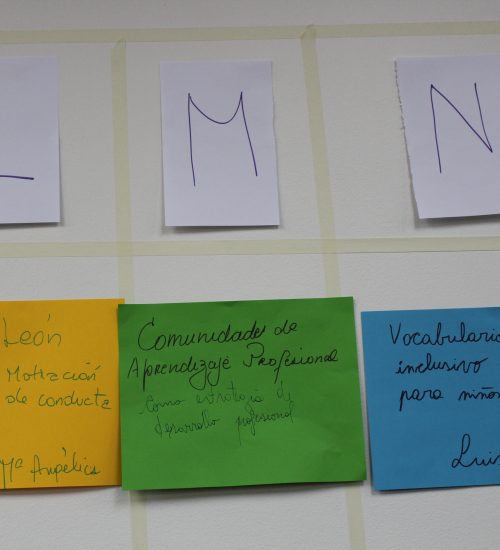 L
M
N
León
Motivación
de conducta
Mª Angélica
Comunidades de
Aprendizaje Profesional
como estrategia de
desarrollo profesional
Vocabulario
inclusivo
para niños
Luis